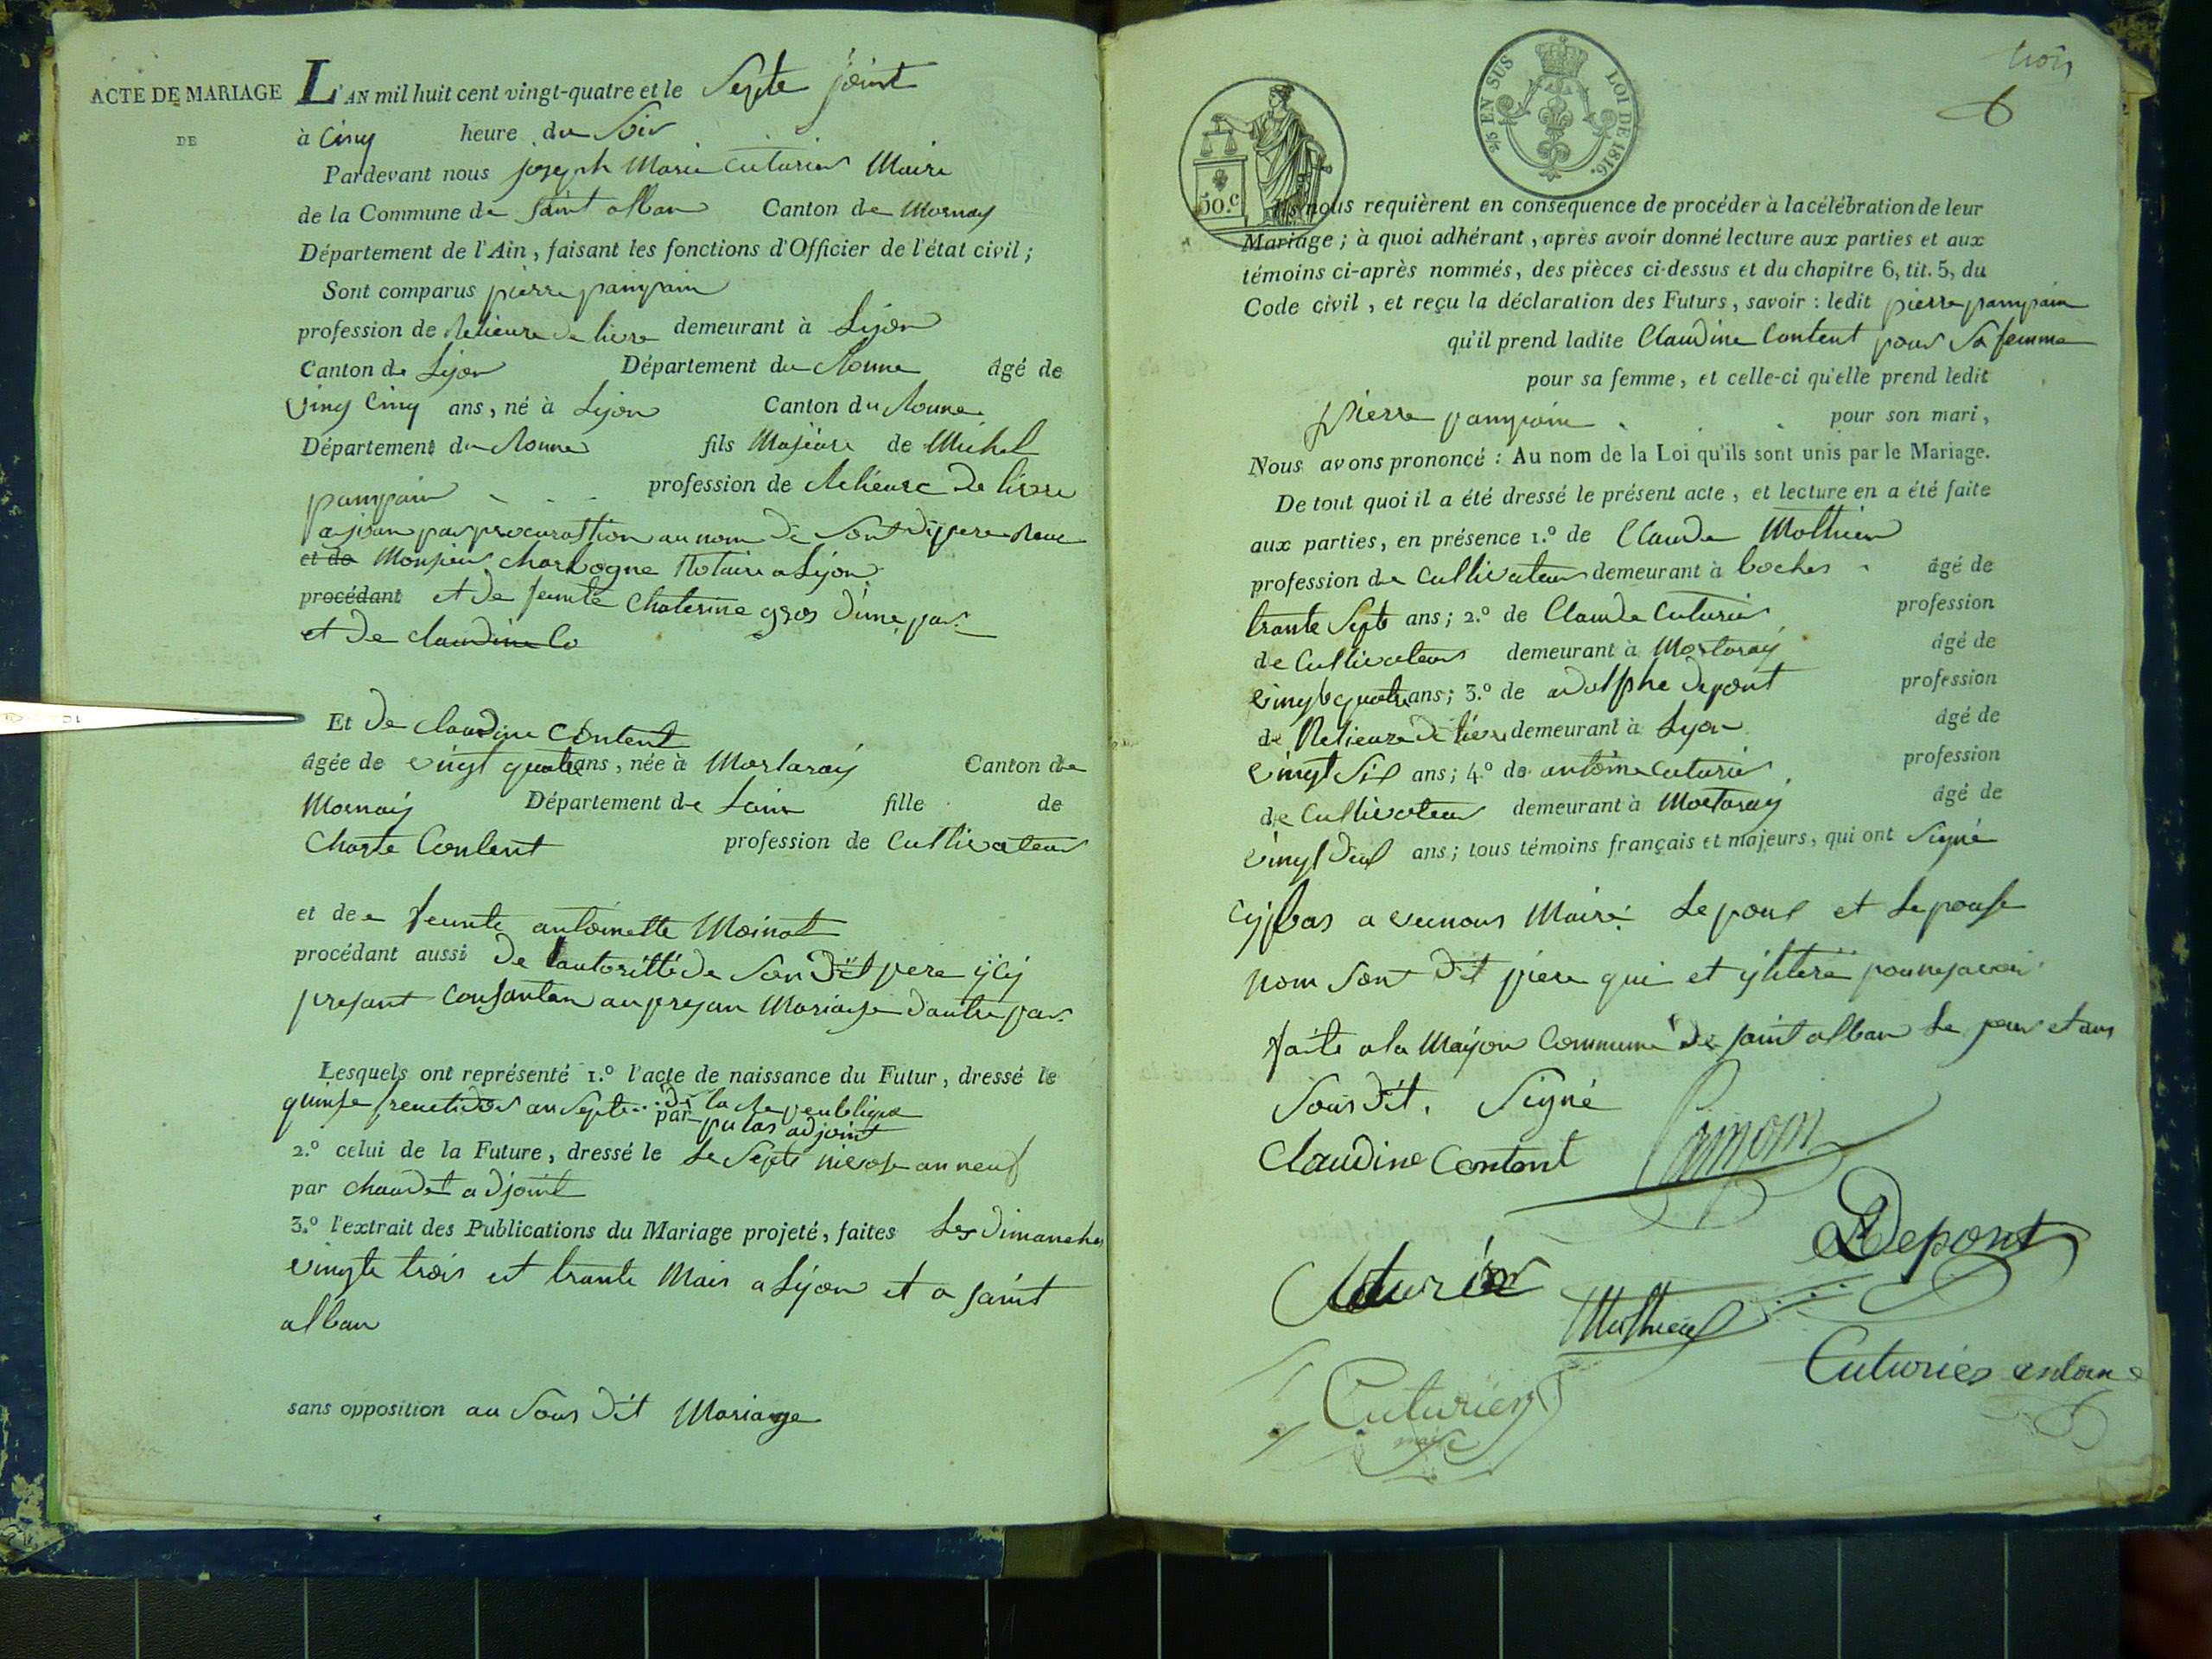 ACTE DE MARIAGE
DE
L'AN mil huit cent vingt-quatre et le Septe joint
à Cinq heure du Soir
Pardevant nous joseph Marie Cuturier Maire
de la Commune de saint alban Canton de Mornay
Département de l'Ain, faisant les fonctions d'Officier de l'état civil;
Sont comparus pierre pampain
profession de Relieure de livre demeurant à Lijon
Canton de Lijon Département du Ronne âgé de
ving Cinq ans, né à Lijon Canton du Ronne
Département du Ronne fils Majeure de Michel
pampain profession de Relieure de livre
par procurasttion au nom de Sont dit pere
et de Monsieur Notaire a Lijon
procédant et de feunte Chaterine gros d'une par
et de claudine Co
Et de claudine Content
âgée de vingt quatre ans, née à Mortaray Canton de
Mornaij Département de Lain fille de
Charle Content profession de Cultivateur
et de feunte antoinette Moinat
procédant aussi de l'autoritté de Son dit pere ÿcÿ
presant Consantan au presan Mariaije d'autre par
Lesquels ont représenté 1.º l'acte de naissance du Futur, dressé le
quinse an Septe de la Republique
par adjoint
2.º celui de la Future, dressé le Le Septe nivose an neuf
par chaudet adjoint
3.º l'extrait des Publications du Mariage projeté, faites Les dimanches
vingte trois et trante Mais a Lijon et a saint
alban
sans opposition au Sous dit Mariage
trois
6
50.c
25 EN SUS LOI DE 1816.
Ils nous requièrent en conséquence de procéder à la célébration de leur
Mariage; à quoi adhérant, après avoir donné lecture aux parties et aux
témoins ci-après nommés, des pièces ci-dessus et du chapitre 6, tit. 5, du
Code civil, et reçu la déclaration des Futurs, savoir: ledit pierre pampain
qu'il prend ladite Claudine Content pour Sa femme
pour sa femme, et celle-ci qu'elle prend ledit
pierre pampain pour son mari,
Nous avons prononcé: Au nom de la Loi qu'ils sont unis par le Mariage.
De tout quoi il a été dressé le présent acte, et lecture en a été faite
aux parties, en présence 1.º de Claude Mothieu
profession de Cultivateur demeurant à boches âgé de
trante Septe ans; 2.º de Claude Cuturier profession
de Cultivateur demeurant à Mortaray âgé de
vingt quatre ans; 3.º de adolphe depont profession
de Relieure de livre demeurant à Lyon âgé de
vingt Six ans; 4.º de antoine Cuturier profession
de Cultivateur demeurant à Mortaray âgé de
vingt deux ans; tous témoins français et majeurs, qui ont Signé
Cy bas avec nous Maire Lepoux et Lepouse
nom Son dit pere qui et
faite a la Maison Commune de saint alban Le jour et ans
Sous dit. Signé
Claudine Contont
Depont
Cuturier
Mothieu
Cuturier antoine
Cuturier
maire